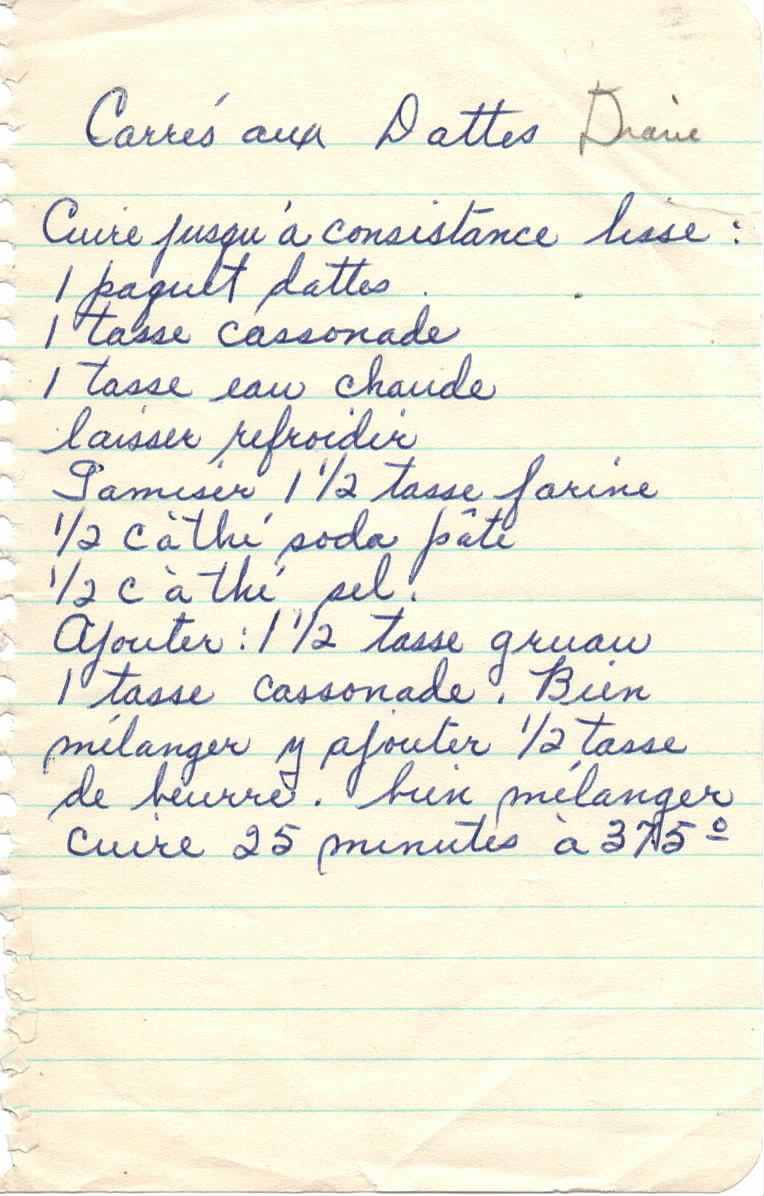 Carrés aux Dattes Diane
Cuire jusqu'à consistance lisse :
1 paquet dattes.
1 tasse cassonade
1 tasse eau chaude
laisser refroidir
Tamiser 1 1/2 tasse farine
1/2 c à thé soda pâte
1/2 c à thé sel.
Ajouter : 1 1/2 tasse gruau
1 tasse cassonade. Bien
mélanger y ajouter 1/2 tasse
de beurre. bien mélanger
cuire 25 minutes à 375º